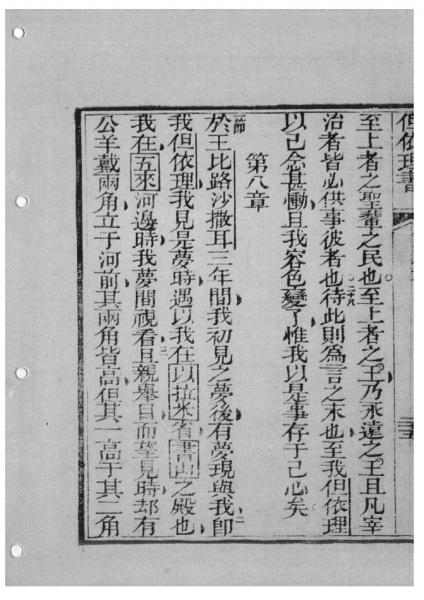 但依理書
至上者之聖輩之民也至上者之王乃永遠之王且凡宰
治者皆必供事彼者也二十八待此則為言之末也至我但依理
以己念甚慟且我容色變了惟我以是事存于己心矣
第八章
一節於王比路沙撒耳三年間我初見之夢後有夢現與我卽
我但依理二我見是夢時遇以我在以拉米省書山之殿也
我在五來河邊時我夢間視看且三親舉目而望見時却有
公羊戴兩角立于河前其兩角皆高但其一高于其二角